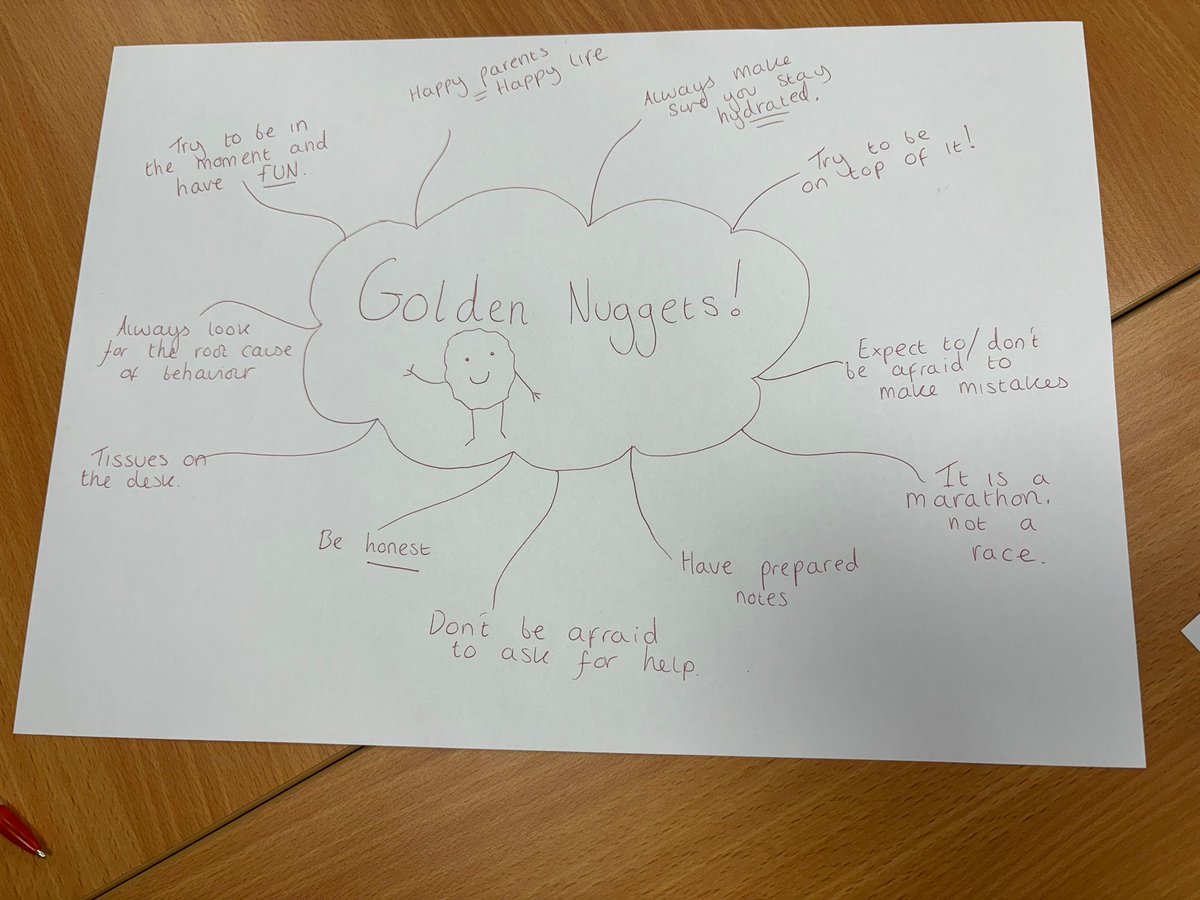 Golden Nuggets!
Happy parents
= Happy life
Always make
sure you stay
hydrated.
Try to be
on top of it!
Expect to/don't
be afraid to
make mistakes
It is a
marathon,
not a
race.
Have prepared
notes
Don't be afraid
to ask for help.
Be honest
Tissues on
the desk.
Always look
for the root cause
of behaviour
Try to be in
the moment and
have fUN.